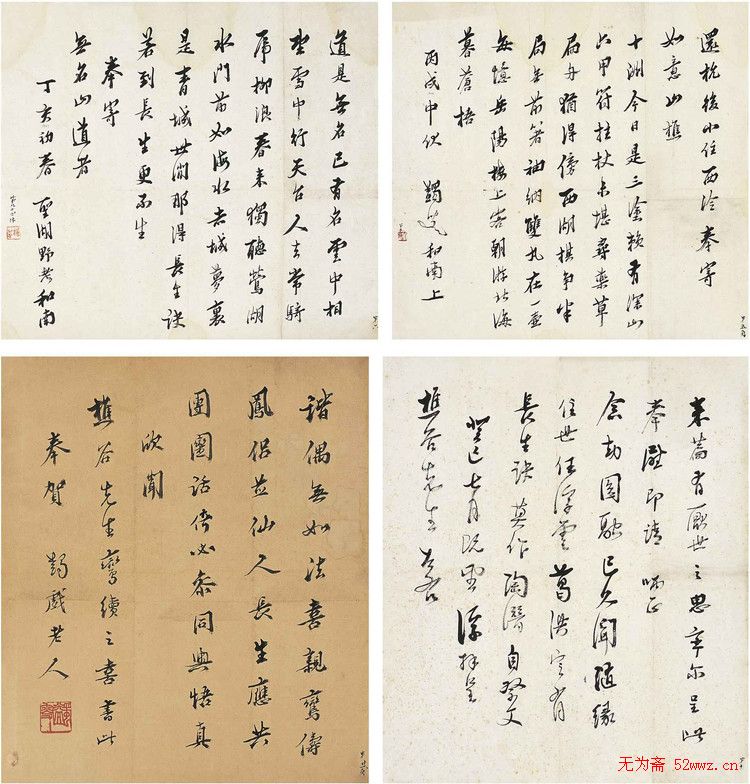 還杭後小住西泠奉寄
如意山樵
十洲今日是三塗賴有深山
六甲符拄杖未堪尋藥草
扁舟猶得傍西湖棋争半
局無前箸袖納雙丸在一壺
每憶岳陽樓上客朝游北海
暮蒼梧
丙戌中伏 蠲叟和南上
道是無名已有名雲中相
望雪中行天台人去常騎
虎柳浪春来獨聽鶯湖
水門前如海水赤城夢裏
是青城世間那得長生訣
若到長生更不生
奉寄
無名山道者
丁亥初春 聖湖野老和南
来篇有厭世之思率尔呈此
奉慰即請 哂正
念劫圓融已久聞隨緣
住世任浮雲葛洪定有
長生訣莫作陶潛自祭文
癸巳七月既望 浮拜呈
樵谷先生
諧偶無如法喜親鸞儔
鳳侶並仙人長生應共
團團話何必參同與悟真
欣聞
樵谷先生鸞續之喜書此
奉賀 蠲戲老人
无为斋 52wwz.cn